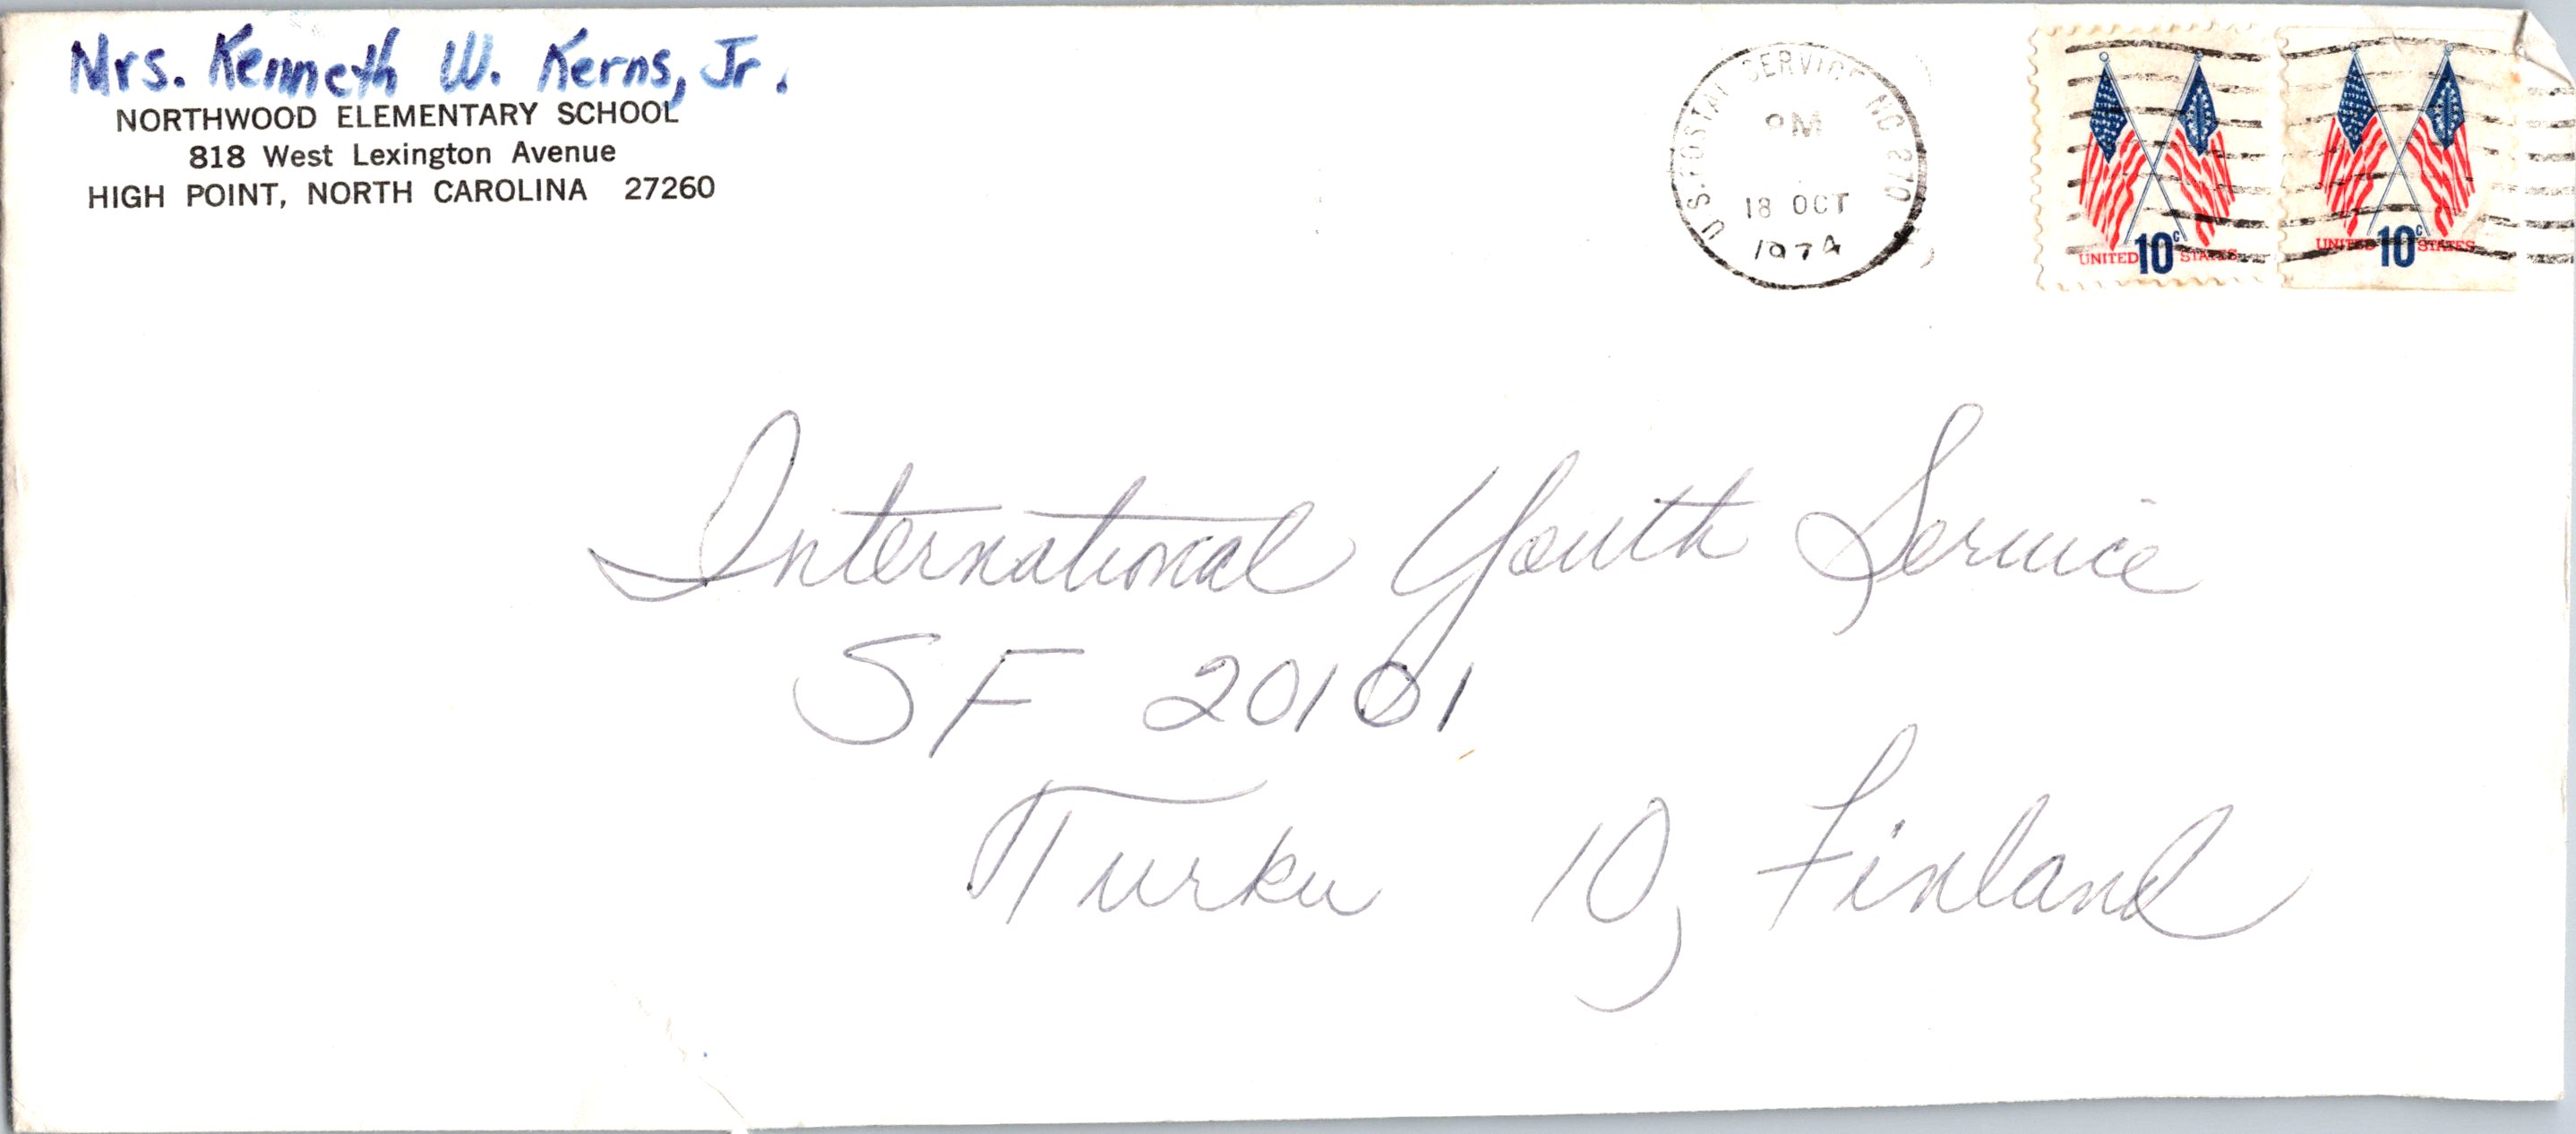 Mrs. Kenneth W. Kerns, Jr.
NORTHWOOD ELEMENTARY SCHOOL
818 West Lexington Avenue
HIGH POINT, NORTH CAROLINA 27260
U.S. POSTAL SERVICE NC 270
PM
18 OCT
1974
UNITED 10c STATES
UNITED 10c STATES
International Youth Service
SF 20101
Turku 10, Finland